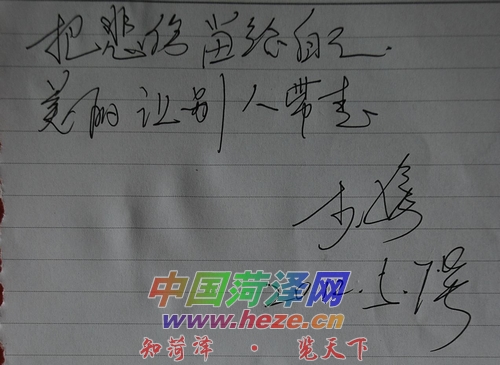 把悲伤留给自己.
美丽让别人带走
中国菏泽网
www.heze.cn
知菏泽 · 览天下